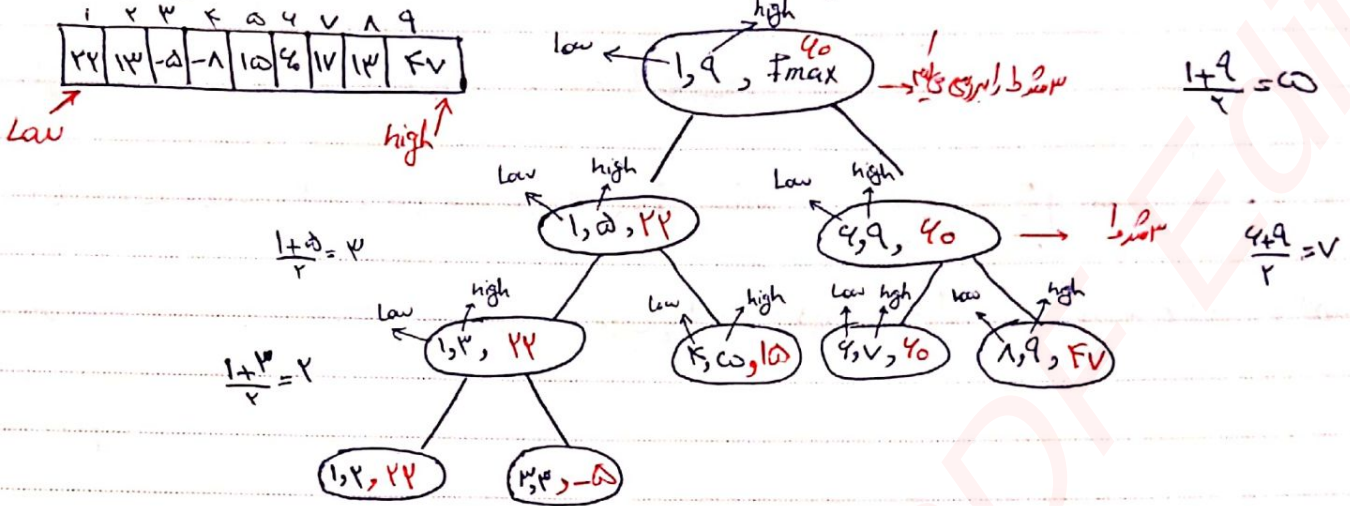 ۱ ۲ ۳ ۴ ۵ ۶ ۷ ۸ ۹
۲۲ ۱۳ -۵ -۸ ۱۵ ۶۰ ۱۷ ۱۳ ۴۷
Low high
low high
۱,۹, fmax ۶۰
۳ شرط را بررسی
۱+۹/۲ = ۵
Low high
۱,۵,۲۲
Low high
۶,۹, ۶۰
۳ شرط
۱+۵/۲ = ۳
۶+۹/۲ = ۷
Low high
۱,۳, ۲۲
Low high
۴,۵,۱۵
Low high
۶,۷,۶۰
low high
۸,۹,۴۷
۱+۳/۲ = ۲
۱,۲,۲۲
۳,۳,-۵
PDF Edit